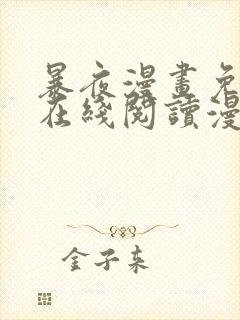 暴夜漫畫免
在綫閱讀漫
金子来